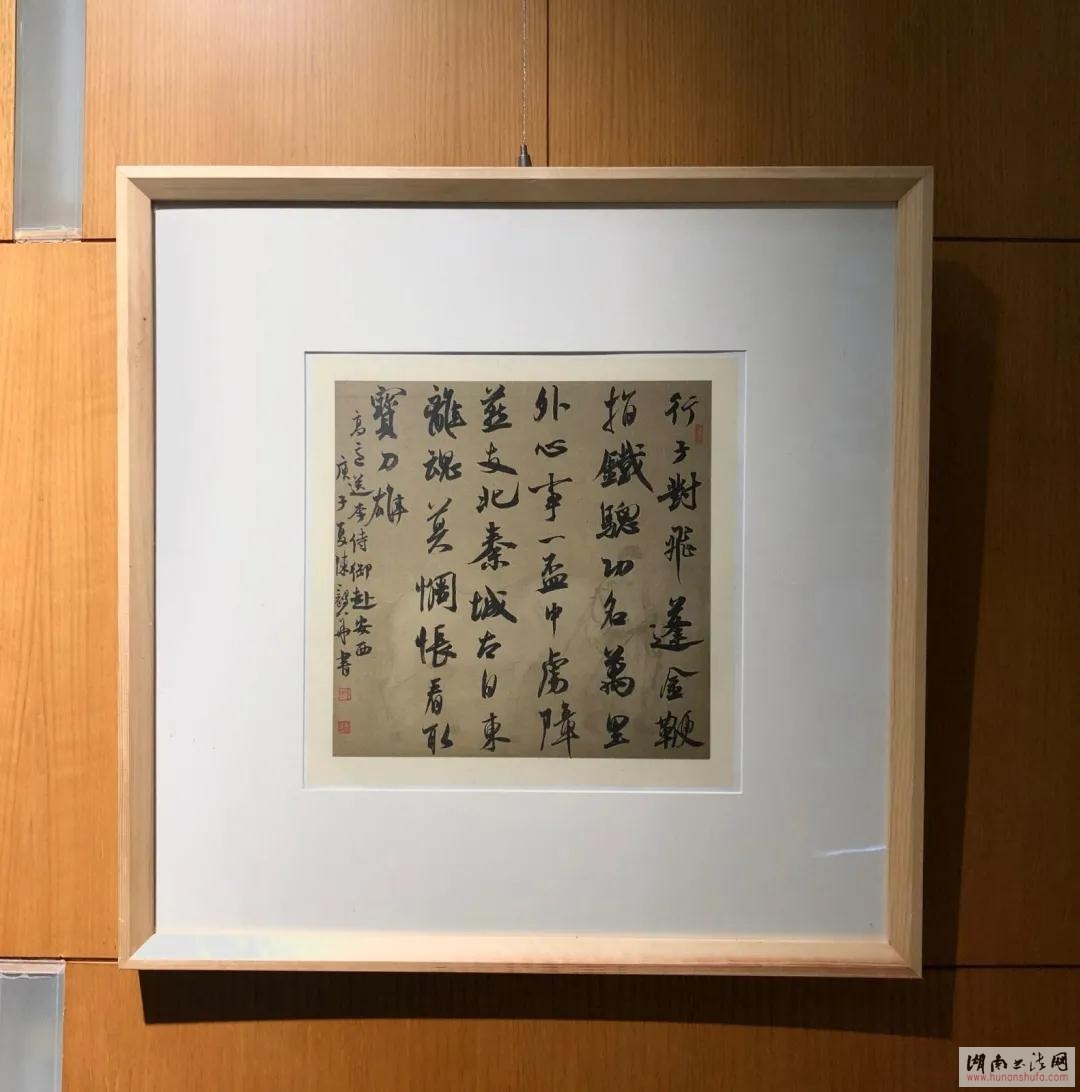 行子對飛蓬金鞭
指鐵驄功名萬里
外心事一盃中虜障
燕支北秦城太白東
離魂莫惆悵看取
寶刀雄
高適送李侍御赴安西
庚子夏陳華書
湖南书法网
www.hunanshufa.com